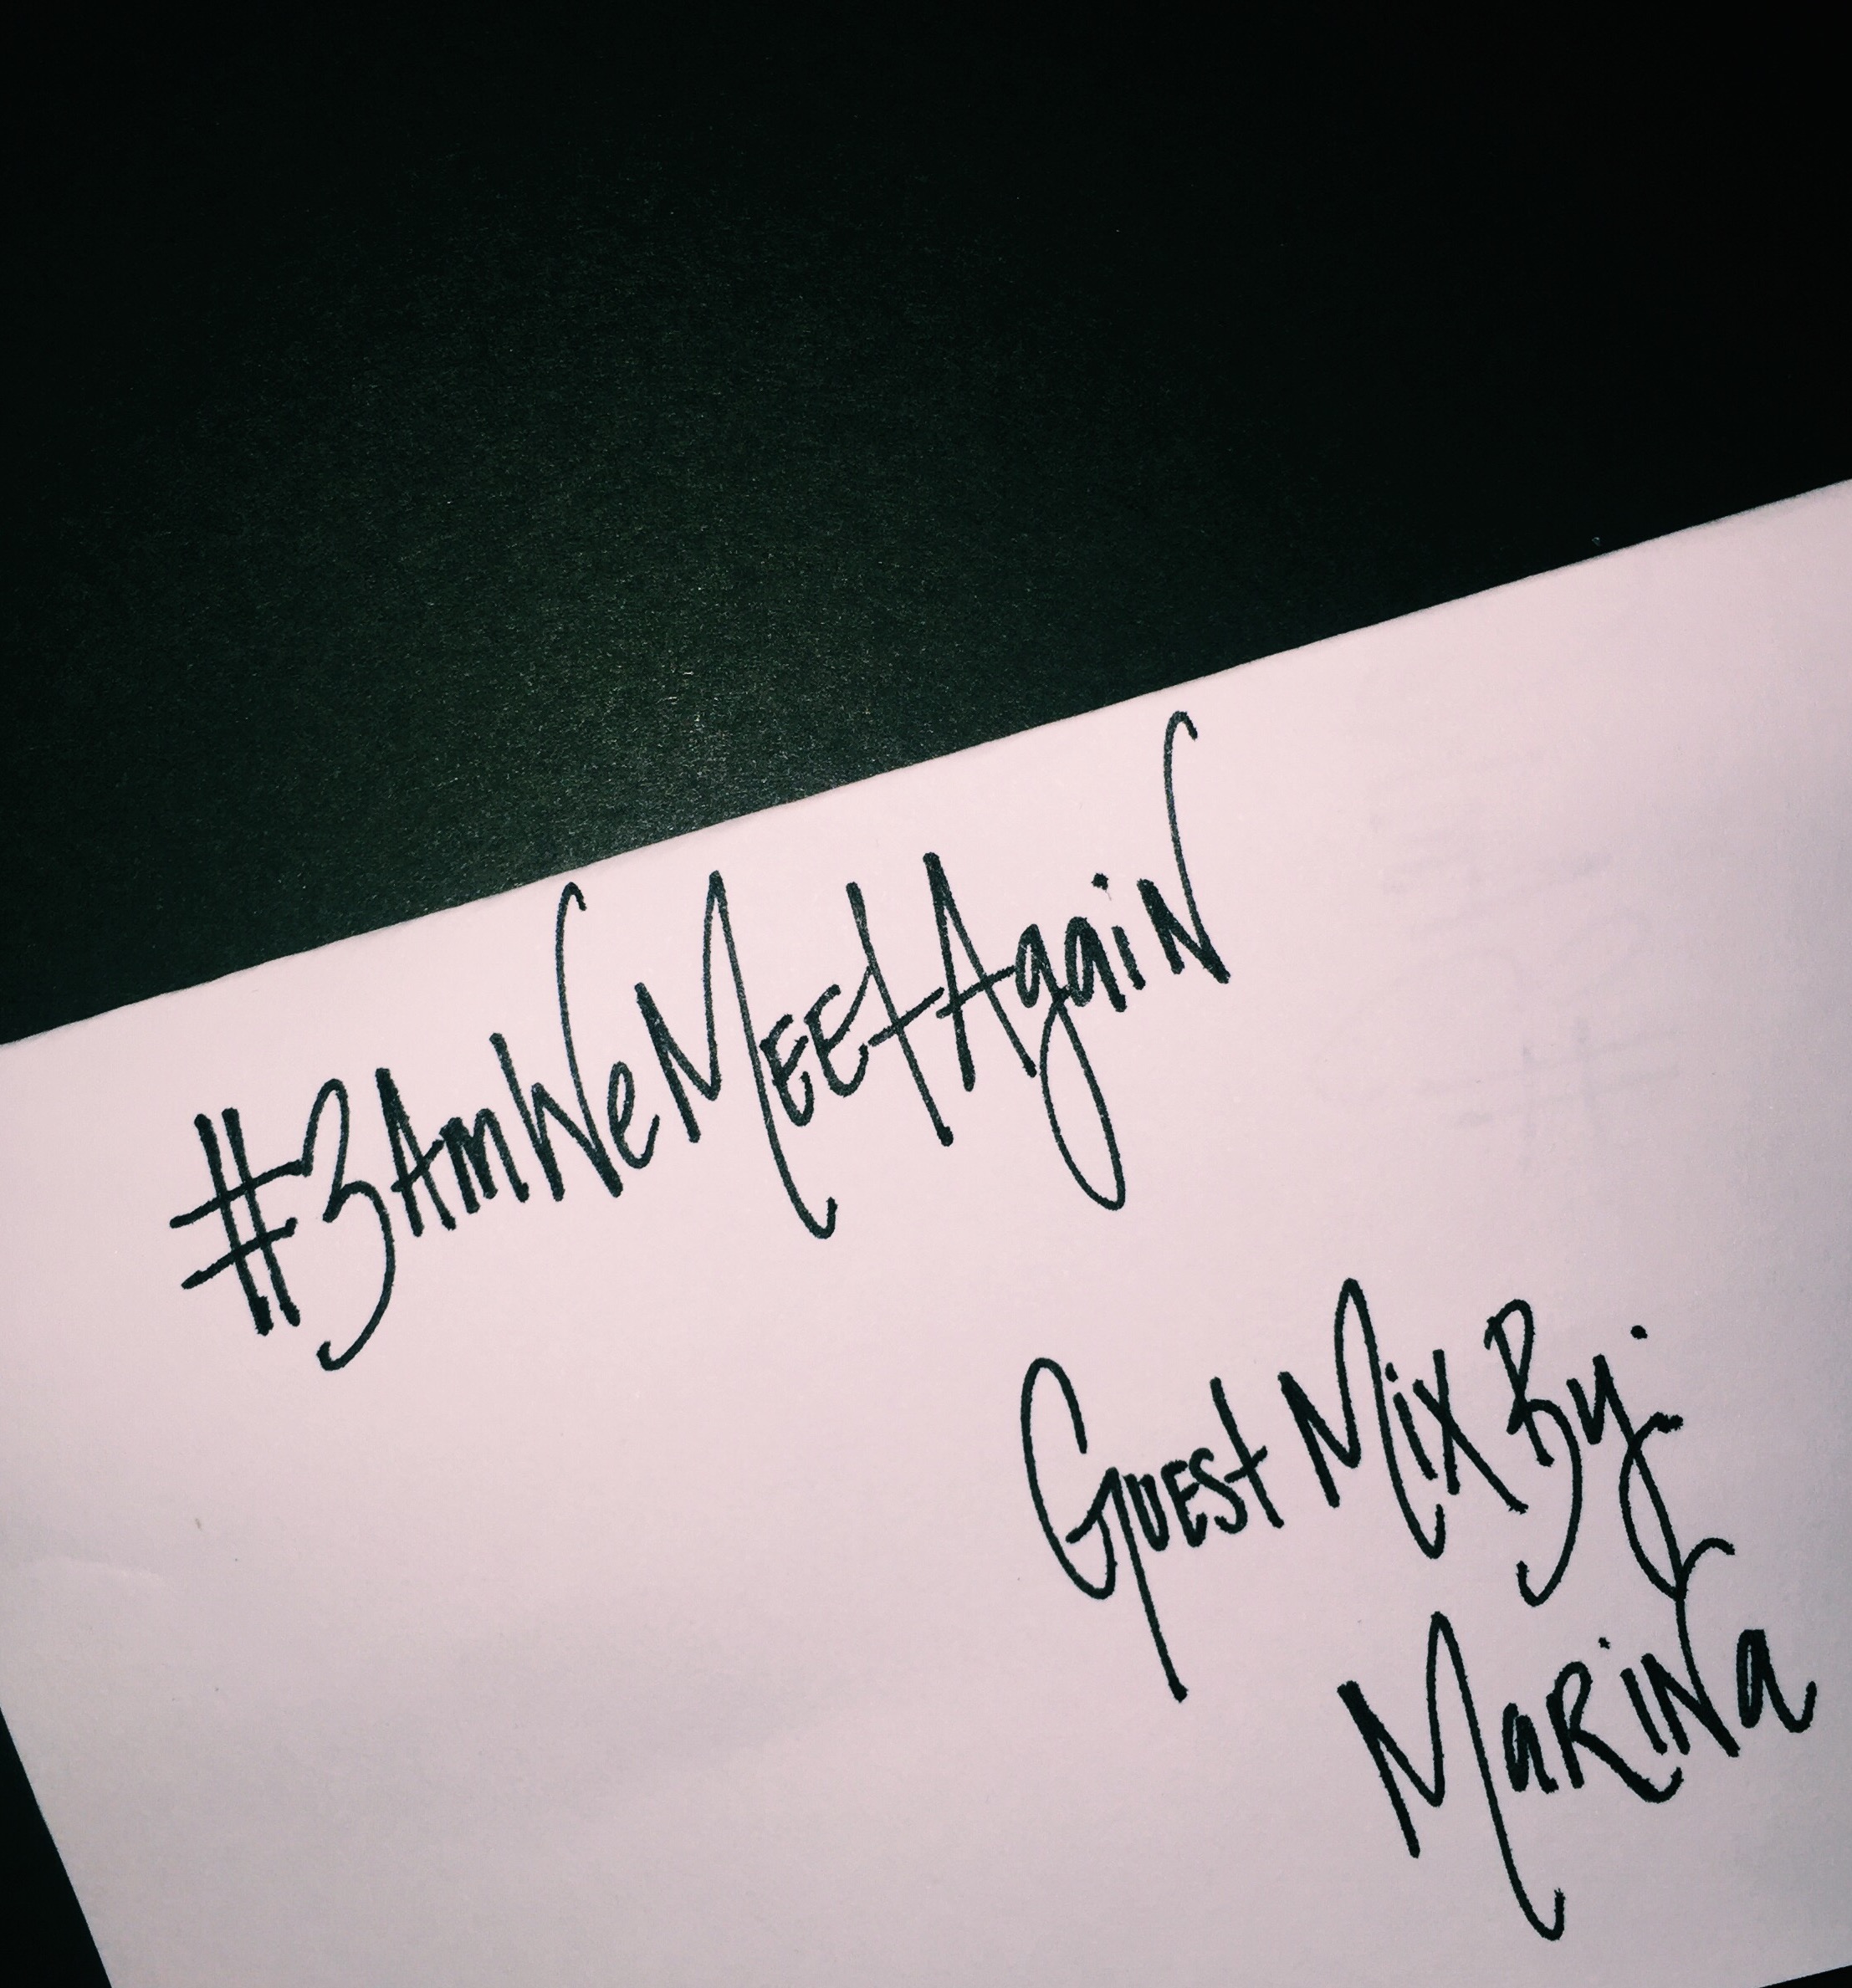 #3AmWeMeetAgain
Guest Mix By:
Marina